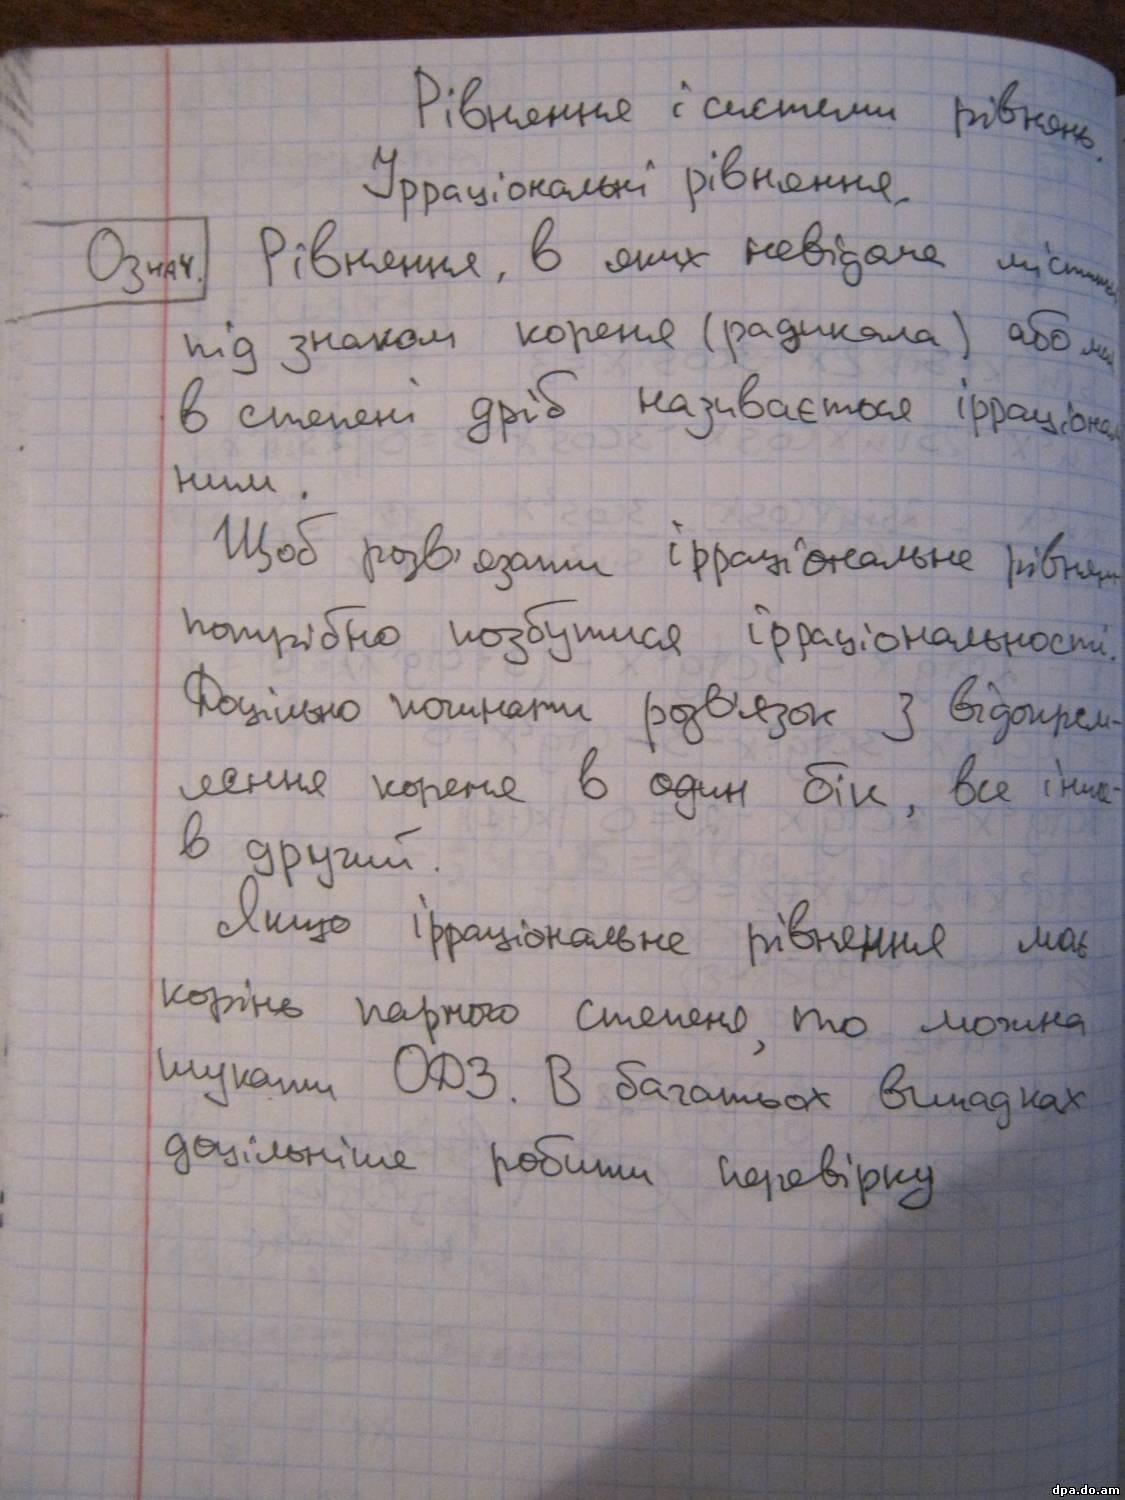 Рівняння і системи рівнянь.
Ірраціональні рівняння.
Означ. Рівняння, в яких невідоме
під знаком кореня (радикала) або
в степені дріб називається
ним.
Щоб розв'язати ірраціональне
потрібно позбутися ірраціональності.
Доцільно починати розв'язок з відокрем-
лення кореня в один бік, все інше-
в другий.
Якщо ірраціональне рівняння має
корінь парного степеня, то можна
шукати ОДЗ. В багатьох випадках
доцільніше робити перевірку
dpa.do.am